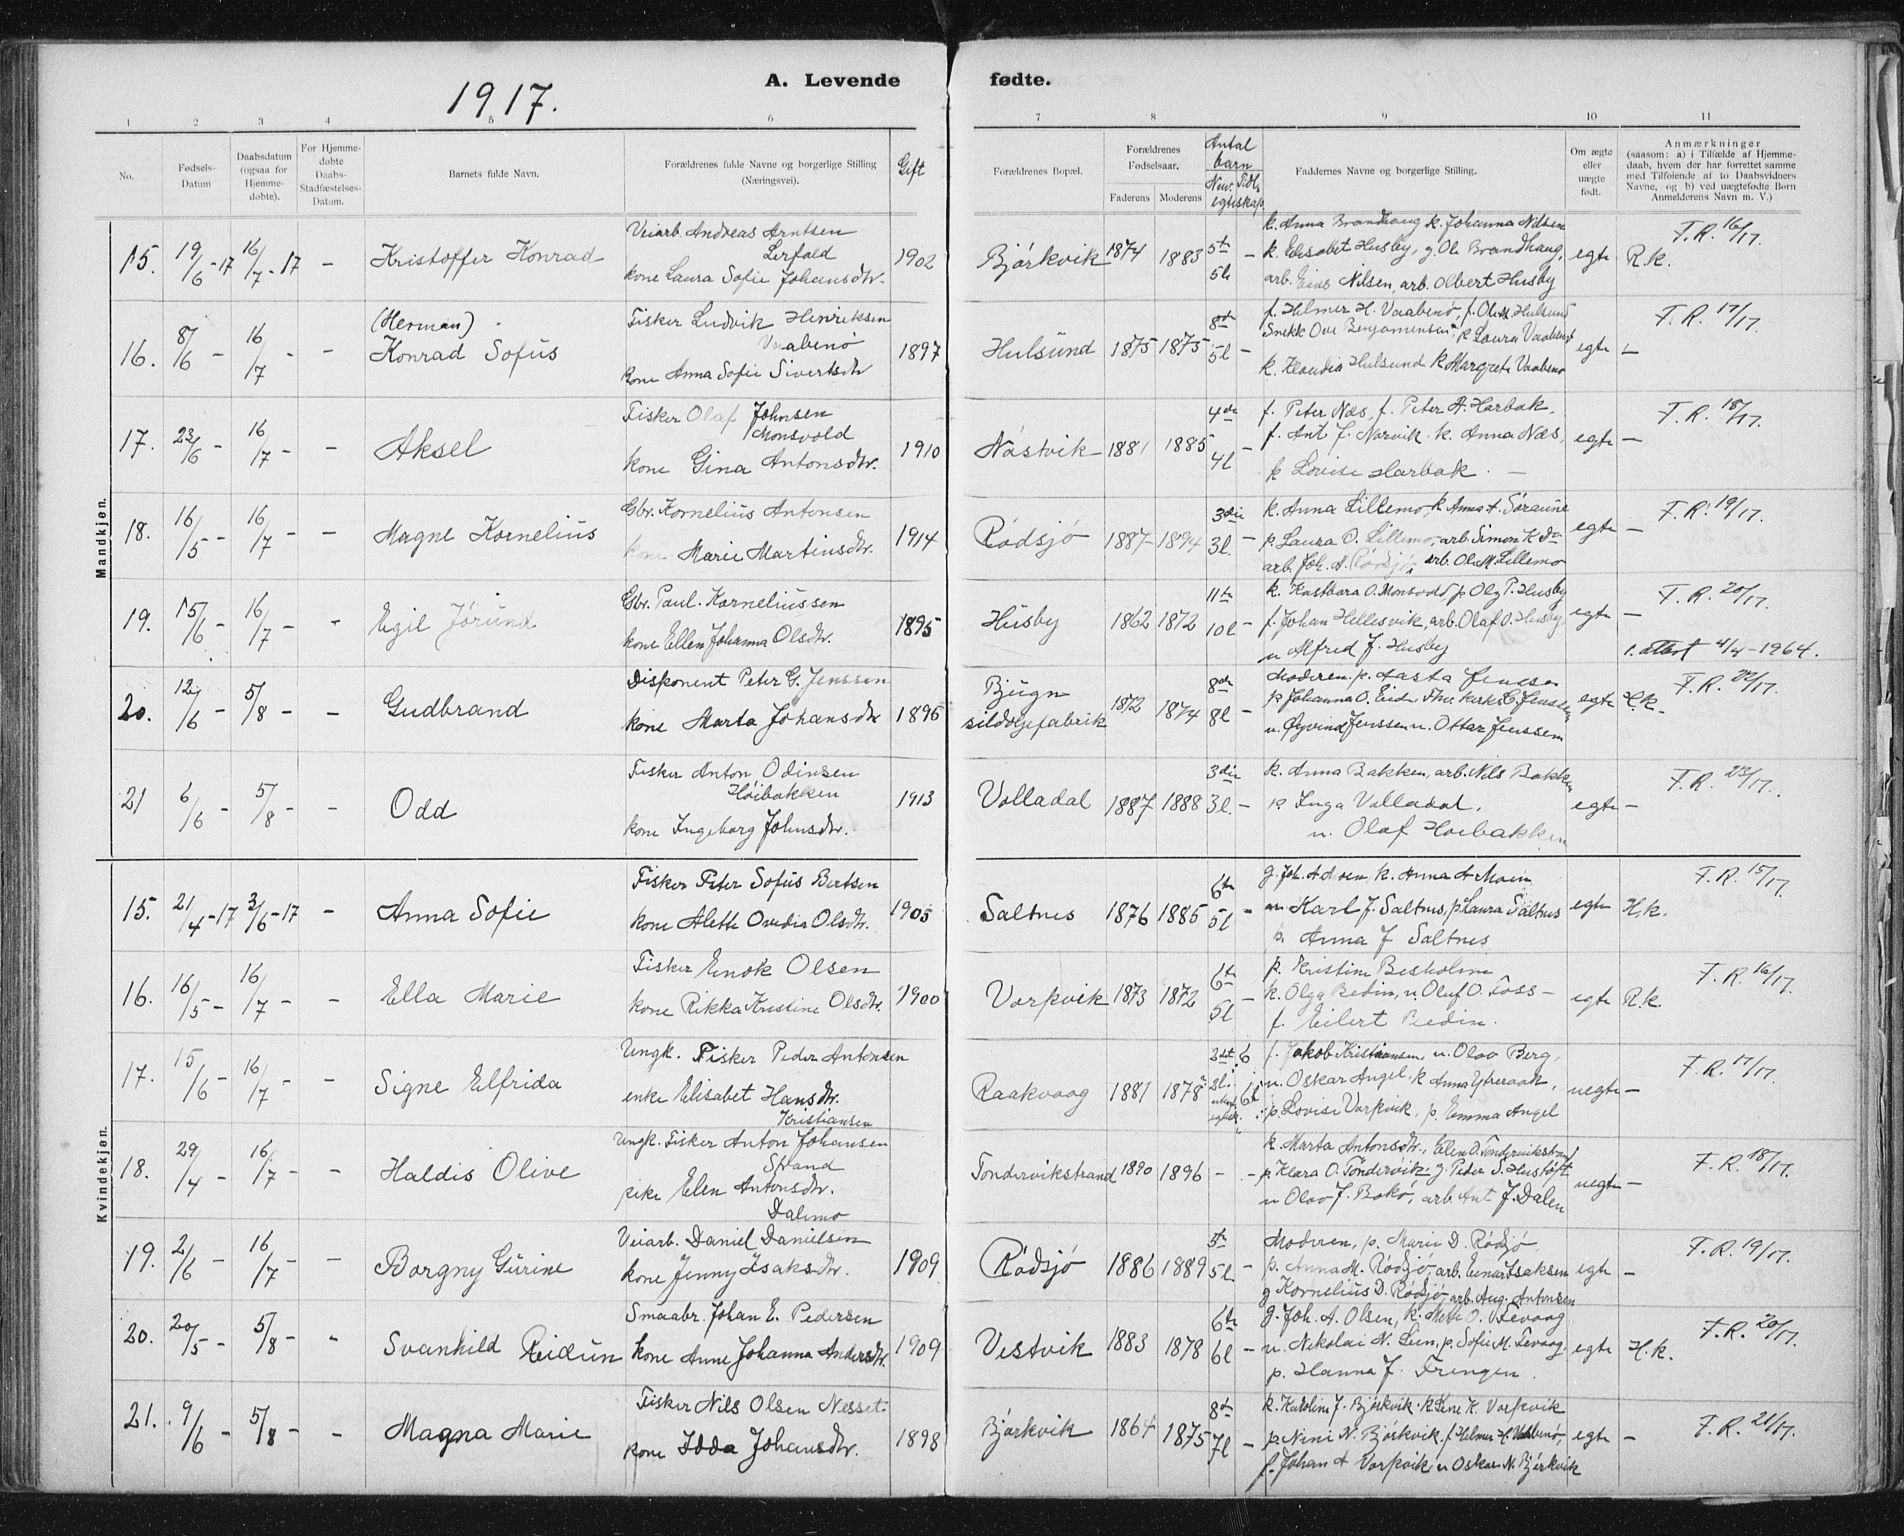 1917.
A. Levende fødte.
1 2 3 4 5 6 7 8 9 10 11
No.
Fødsels-Datum
Daabsdatum (ogsaa for Hjemmedøbte).
For Hjemmedøbte Daabs-Stadfæstelses-Datum.
Barnets fulde Navn.
Forældrenes fulde Navne og borgerlige Stilling (Næringsvei).
Gift
Forældrenes Bopæl.
Forældrenes Fødselsaar.
Faderens Moderens
Antal barn
Nuv. Tidl. egteskap.
Faddernes Navne og borgerlige Stilling.
Om ægte eller uægte født.
Anmærkninger
(saasom: a) i Tilfælde af Hjemmedaab, hvem der har forrettet samme med Tilføiende af to Daabsvidners Navne, og b) ved uægtefødte Børn Anmelderens Navn m. V.)
Mandkjøn.
15. 19/6-17 16/7-17 - Kristoffer Konrad
Veiarb. Andreas Arntsen
Lerfald
kone Laura Sofie Johansdtr. 1902
Bjørkvik 1874 1883 5te 5l -
k. Anna Brandhaug k. Johanna Nilsen
k. Elisabet Husby, g. Ole Brandhaug,
arb. Nilsen, arb. Olbert Husby
egte R.k. F.R. 16/17.
16. 8/6 - 16/7 - - (Herman) Konrad Sofus
Fisker Ludvik Henriksen
Vaabenø
kone Anna Sofie Sivertsdtr 1897
Hulsund 1875 1875 8de 5l -
f. Helmer H. Vaabenø, f. Hulsund
Snekk Ove Benjaminsen, p Laura Vaabenø
k. Klaudia Hulsund k Margrete Vaabenø
egte - F.R. 17/17.
17. 23/6 - 16/7 - - Aksel
Fisker Olaf Johnsen
Monsvold
kone Gina Antonsdtr. 1910
Nøstvik 1881 1885 4de 4l -
f. Peter Næs, f. Peter A. Harbak,
f. Ant. J. Narvik k. Anna Næs,
p Lovise Harbak. -
egte - F.R. 18/17.
18. 16/5 - 16/7 - - Magne Kornelius
Gbr. Kornelius Antonsen
kone Marie Martinsdtr. 1914
Rødsjø 1887 1894 3die 3l. -
k. Anna Lillemo, k Anna A. Søraune
p. Laura O. Lillemo, arb. Simon K. do
arb. Joh. A. Rødsjø, arb. Ole M. Lillemo
egte - F.R. 19/17.
19. 15/6 - 16/7 - - Egil Jørund
Gbr. Paul Korneliussen
kone Ellen Johanna Olsdtr. 1895
Husby 1862 1872 11te 10l -
k. Kastbara O. Monsvold p Olg P. Husby
f. Johan Hellesvik, arb. Olaf O. Husby
u Alfred J. Husby
egte - F.R. 20/17.
1. attest 4/4-1964.
20. 12/6 - 5/8 - - Gudbrand
Disponent Peter G. Jenssen
kone Marta Johansdtr 1895
Bjugn sildoljefabrik 1872 1874 8de 8l -
Moderen, p. Aasta Jenssen
p. Johanna O. Eide, C. Jenssen
u. Øyvind Jenssen u. Ottar Jenssen
egte H.k. F.R. 22/17.
21 6/6 - 5/8 - - Odd
Fisker Anton Odinsen
Høibakken
kone Ingeborg Johnsdtr. 1913
Valladal 1887 1888 3die 3l. -
k. Anna Bakken, arb. Nils Bakken
p Inga Valladal,
u. Olaf Høibakken
egte - F.R. 23/17.
Kvindekjøn.
15. 21/4-17 3/6-17 - Anna Sofie
Fisker Peter Sofus Bertsen
kone Alette Ovedia Olsdtr. 1905
Saltnes 1876 1885 6te 5l -
g. Joh. k. Anna A Moen
Karl J. Saltnes, p. Laura Saltnes
p. Anna J Saltnes
egte H.k. F.R. 15/17.
16. 16/5 - 16/7 - - Ella Marie
Fisker Enok Olsen
kone Rikka Kristine Olsdtr. 1900
Varpvik 1873 1872 6te 5l -
p. Kristine Besholm
k. Olga Bedin, u Oluf O. Foss -
f. Eilert Bedin.
egte R.k. F.R. 16/17.
17. 15/6 - 16/7 - - Signe Elfrida
Ungk. Fisker Peder Antonsen
enke Elisabet Hansdtr.
Kristiansen
Raakvaag 1881 1878
2det 6
2l. 6l
f. Jakob Kristiansen, u. Olav Berg,
u. Oskar Angel, k Anna Ytreaak,
p. Lovise Varpvik, p. Emma Angel
uegte - F.R. 17/17.
18. 29/4 - 16/7 - - Haldis Olive
Ungk. Fisker Anton Johansen
Strand
pike Elen Antonsdtr.
Dalemo
Tøndervikstrand 1890 1896 - -
k. Marta Antonsdtr., Elen O. Tøndervikstrand
p. Klara O. Tøndervik, g. Peter S. Hustoft
u Olav J. Bakø, arb. Ant J. Dalen
uegte - F.R. 18/17.
19. 2/6 - 16/7 - - Borgny Gurine
Veiarb. Daniel Danielsen
kone Jenny Isaksdtr. 1909
Rødsjø 1886 1889 5te 5l -
Moderen, p. Marie D. Rødsjø
p. Anna M. Rødsjø, arb. Einar Isaksen
g Kornelius D. Rødsjø arb. Aug. Antonsen
egte - F.R. 19/17.
20. 20/5 - 5/8 - - Svanhild Reidun
Smaabr. Johan E. Pedersen
kone Anne Johanna Andersdtr. 1909
Vestvik 1883 1878 6te 6l -
g. Joh. A. Olsen, k. Mette O. Tevaag
u. Nikolai N. Lien, p. Sofie M. Tevaag
p. Hanna J. Frengen.
egte H.k. F.R. 20/17.
21. 9/6 - 5/8 - - Magna Marie
Fisker Nils Olsen Nesset.
kone Idda Johansdtr. 1898
Bjørkvik 1864 1875 8de 7l -
k. Karolin J. Bjørkvik k Lene K. Varpvik
p. Nini N. Bjørkvik, f. Helmer H. Vaabenø,
f. Johan A Varpvik, u Oskar N. Bjørkvik
egte - F.R. 21/17.